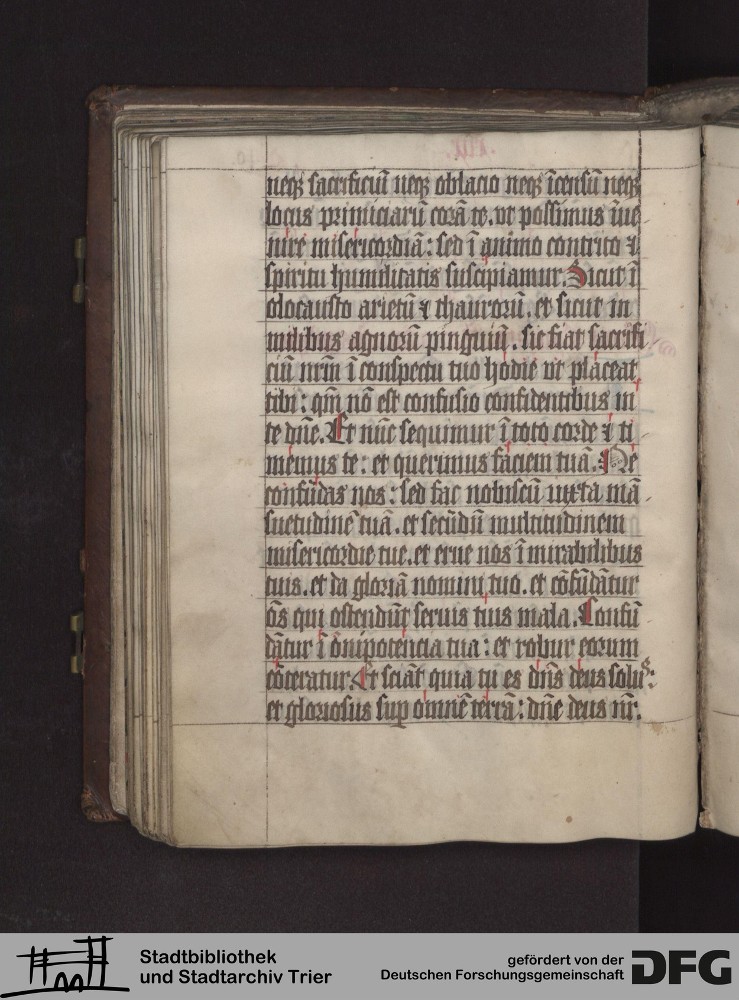 neqꝫ sacrificiū neqꝫ oblacio neqꝫ īcensū neqꝫ
locus primiciarū corā te. vt possimus īue
nire misericordiā: sed ī animo contrito ⁊
spiritu humilitatis suscipiamur. Sicut ī
olocausto arietū ⁊ thaurorū. et sicut in
milibus agnorū pinguiū. sic fiat sacrifi
ciū nrm̄ ī conspectu tuo hodie vt placeat
tibi: qm̄ nō est confusio confidentibus in
te dn̄e. Et nūc sequimur ī toto corde ⁊ ti
memus te: et querimus faciem tuā. Ne
confūdas nos: sed fac nobiscū iuxta mā
suetudinē tuā. et secūdū multitudinem
misericordie tue. et erue nos ī mirabilibus
tuis. et da gloriā nomini tuo. et cōfūdātur
oēs qui ostendūt seruis tuis mala. Confū
dātur ī oīnipotencia tua: et robur eorum
cōteratur. Et sciāt quia tu es dn̄s deus solus:
et gloriosus sup omnē terrā: dn̄e deus nr̄.
Stadtbibliothek
und Stadtarchiv Trier
gefördert von der
Deutschen Forschungsgemeinschaft
DFG